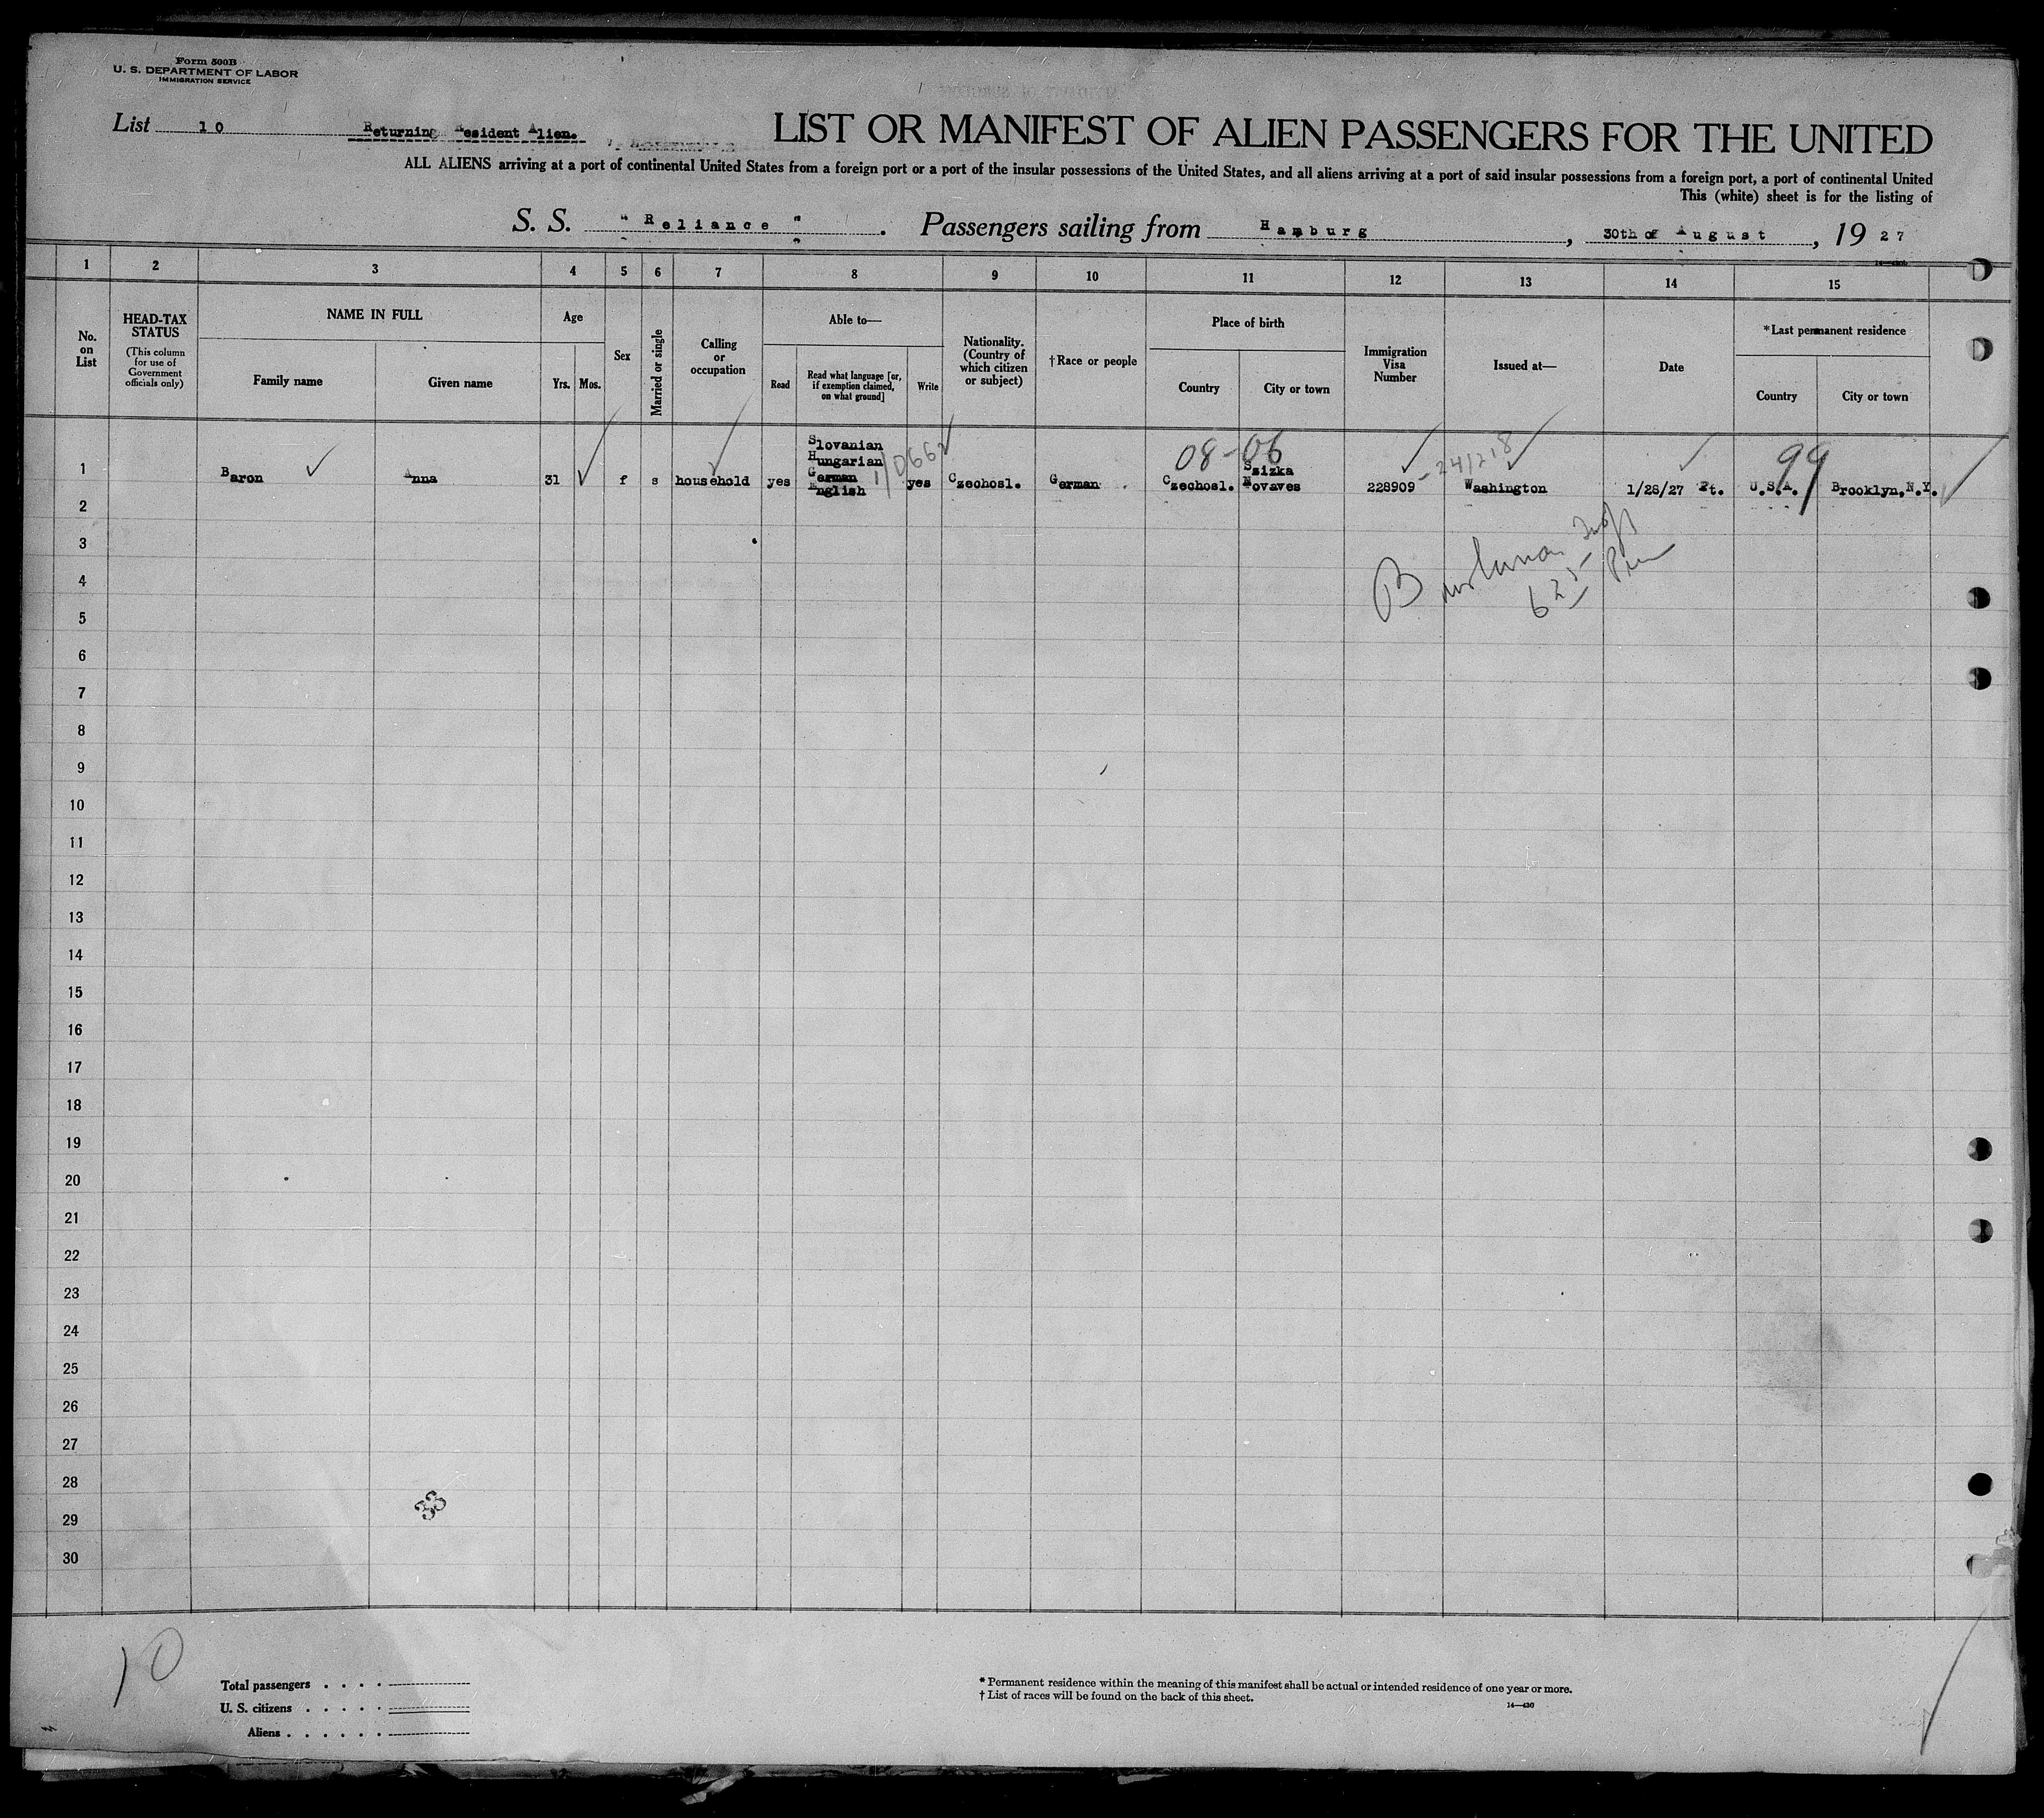 Form 500B
U. S. DEPARTMENT OF LABOR
IMMIGRATION SERVICE
List 10 Returning Resident Alien.
LIST OR MANIFEST OF ALIEN PASSENGERS FOR THE UNITED
ALL ALIENS arriving at a port of continental United States from a foreign port or a port of the insular possessions of the United States, and all aliens arriving at a port of said insular possessions from a foreign port, a port of continental United
This (white) sheet is for the listing of
S. S. "Reliance". Passengers sailing from Hamburg, 30th of August, 1927
1 2 3 4 5 6 7 8 9 10 11 12 13 14 15
No. on List
HEAD-TAX STATUS
(This column for use of Government officials only)
NAME IN FULL
Family name
Given name
Age
Yrs.
Mos.
Sex
Married or single
Calling or occupation
Able to—
Read
Read what language [or, if exemption claimed, on what ground]
Write
Nationality. (Country of which citizen or subject)
†Race or people
Place of birth
Country
City or town
Immigration Visa Number
Issued at—
Date
*Last permanent residence
Country
City or town
08-06
99
1/0662
-241218
1 Baron Anna 31 f s household yes Slovanian Hungarian German English yes Czechosl. German Czechosl. Szizka Novaves 228909 Washington 1/28/27 Pt. U.S.A. Brooklyn, N.Y.
2
3
4
5
6
7
8
9
10
11
12
13
14
15
16
17
18
19
20
21
22
23
24
25
26
27
28
29
30
33
10
Total passengers
U. S. citizens
Aliens
* Permanent residence within the meaning of this manifest shall be actual or intended residence of one year or more.
† List of races will be found on the back of this sheet.
14—430